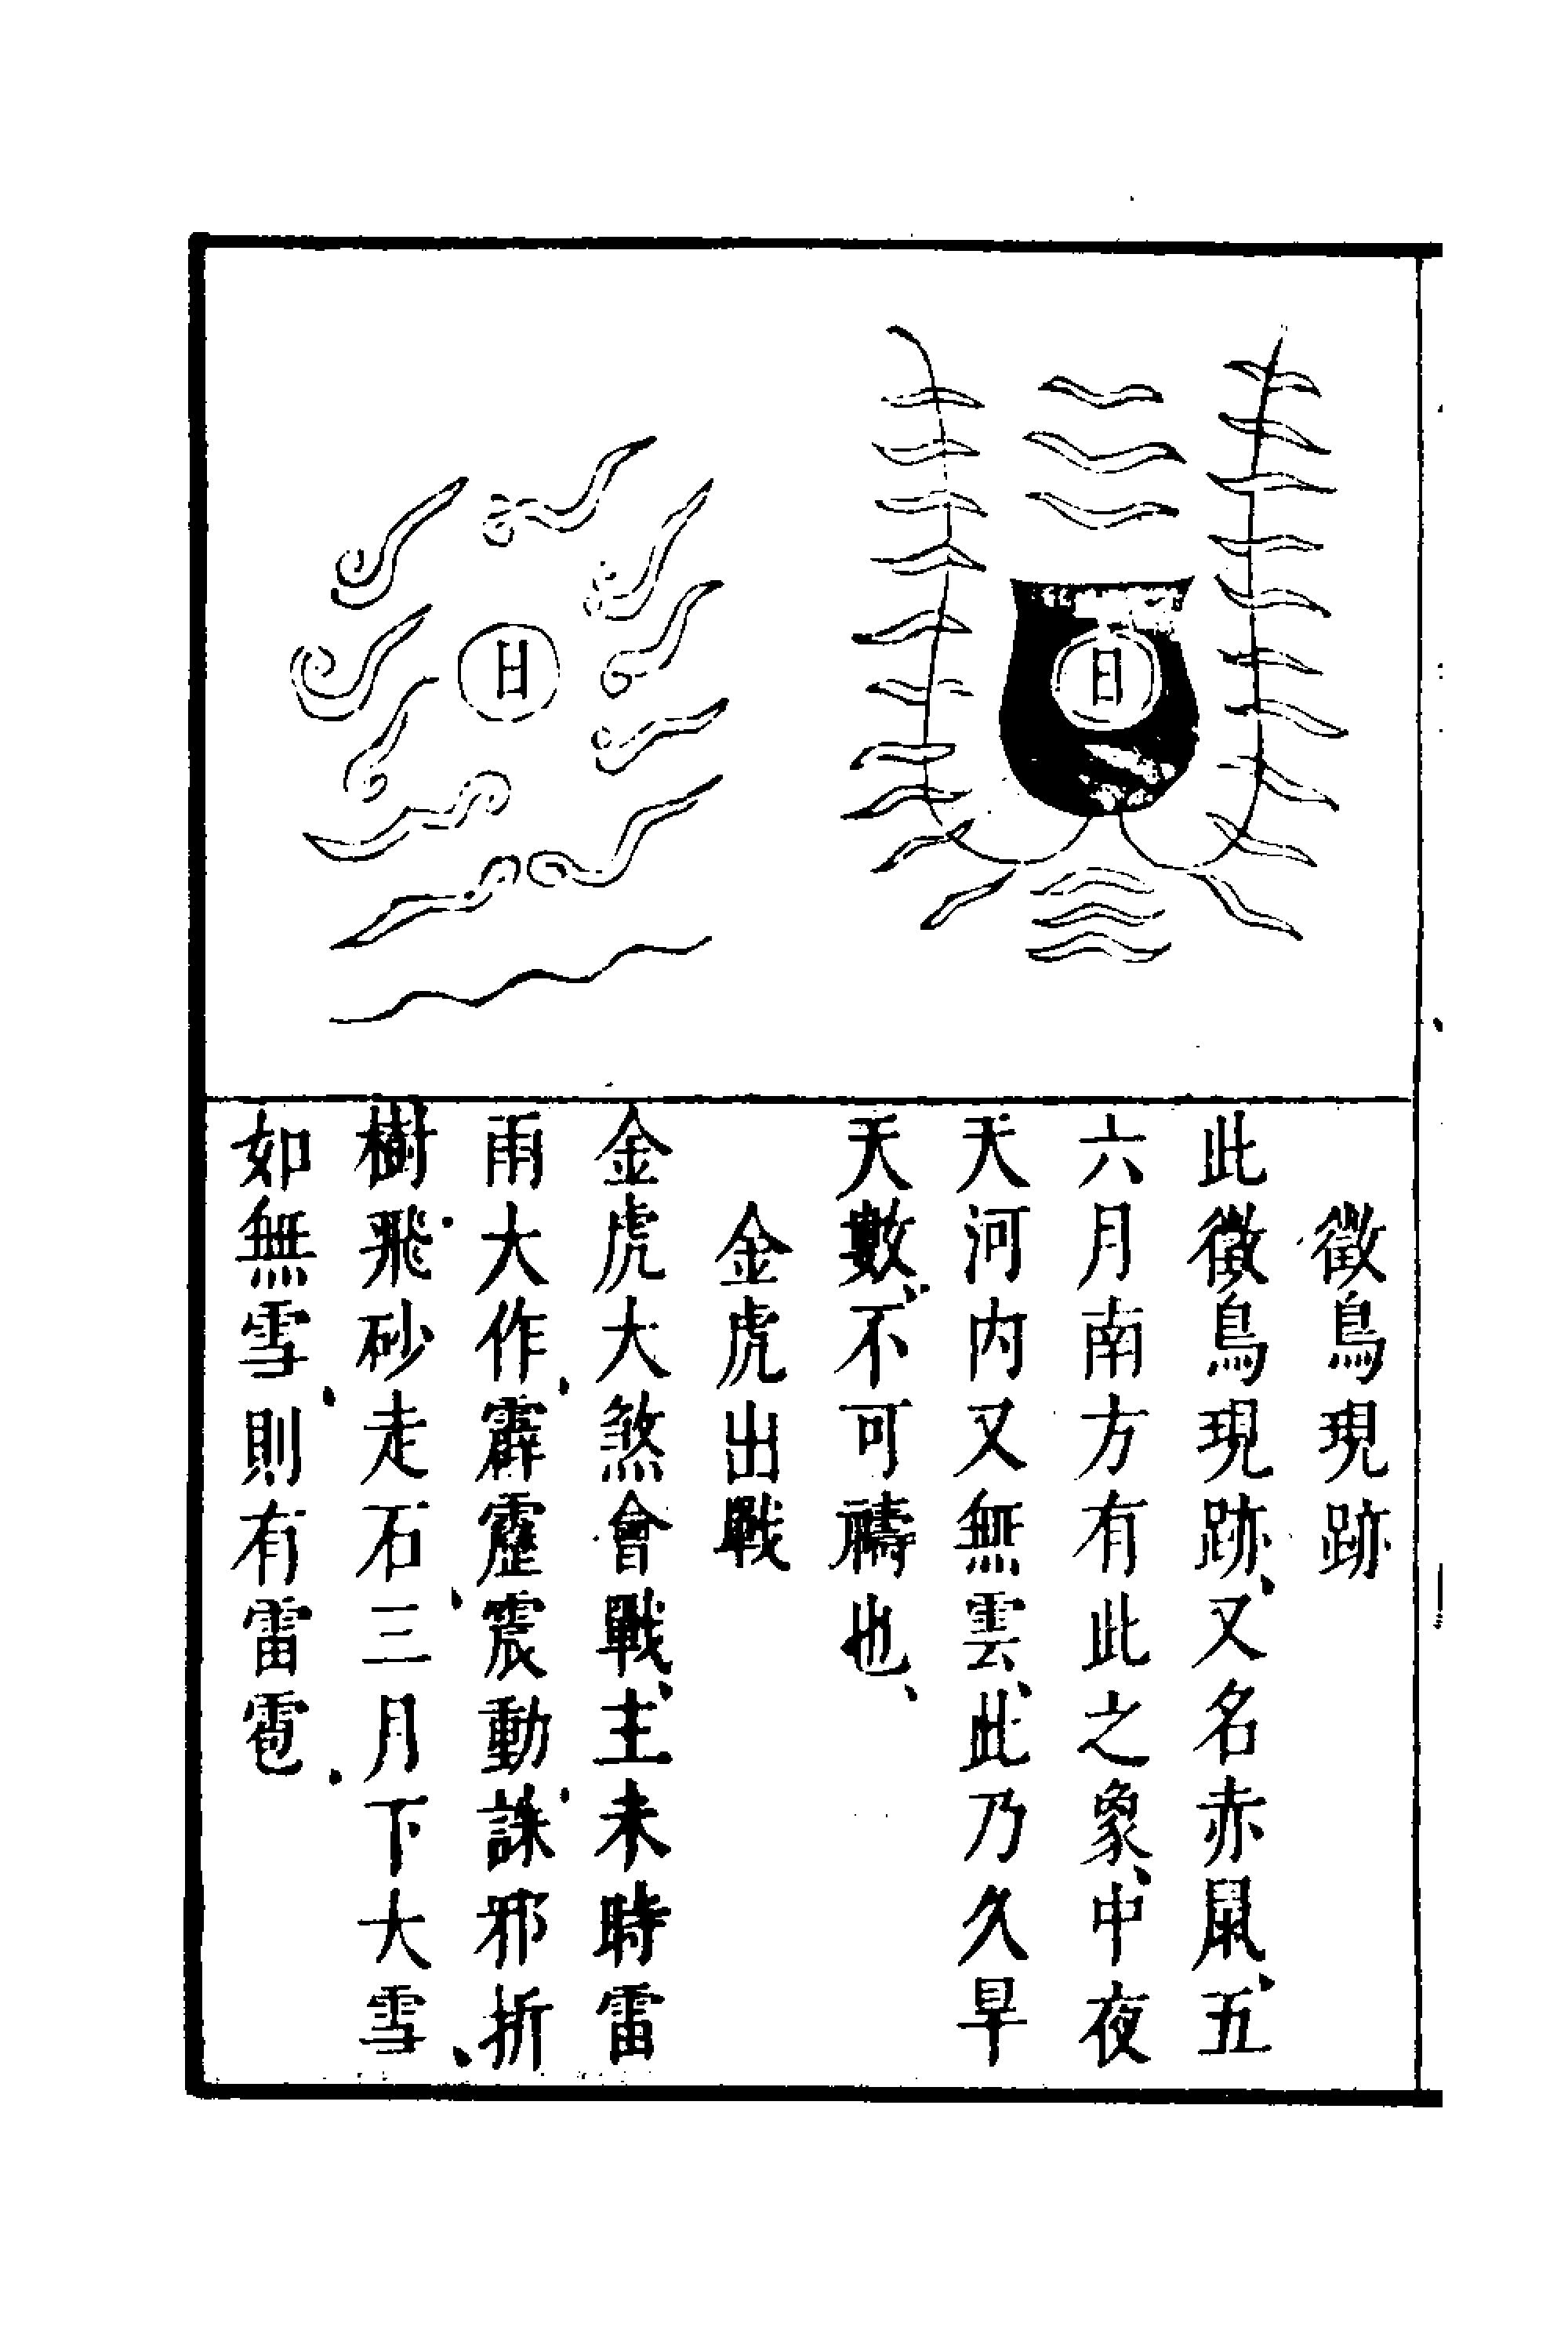 日
日
徵鳥現跡
此徵鳥現跡、又名赤鼠、五
六月南方有此之象、中夜
天河内又無雲、此乃久旱
天數、不可禱也、
金虎出戰
金虎大煞會戰、主未時雷
雨大作、霹靂震動、誅邪折
樹、飛砂走石、三月下大雪、
如無雪、則有雷雹、